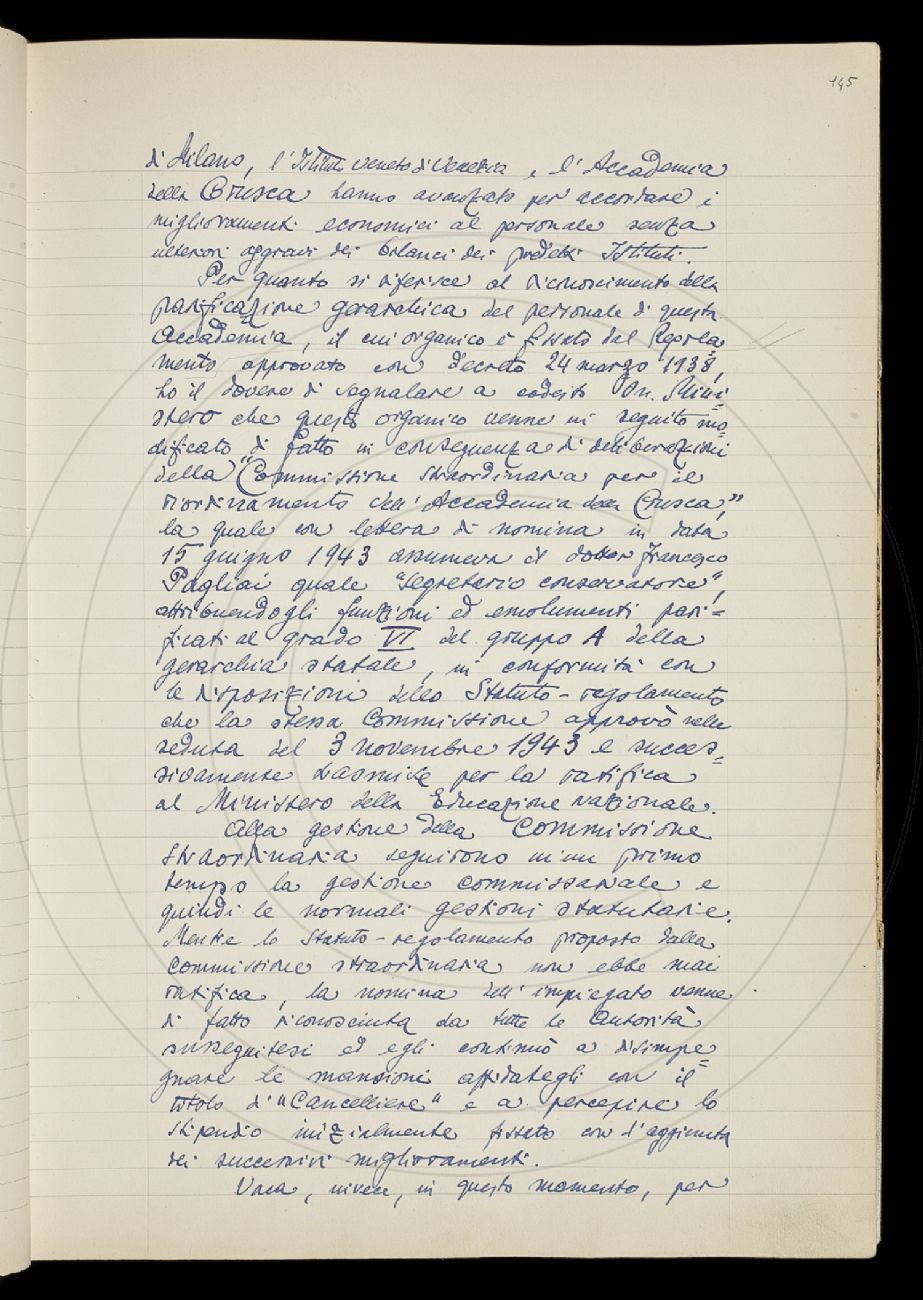 145
di Milano, l'Istituto veneto di Venezia, e l'Accademia
della Crusca hanno avanzato per accordare i
miglioramenti economici al personale senza
ulteriori aggravi dei bilanci dei predetti Istituti.
Per quanto si riferisce al riconoscimento della
parificazione gerarchica del personale di questa
Accademia, il cui organico è fissato dal Regola=
mento approvato con decreto 24 marzo 1938,
ho il dovere di segnalare a codesto On. Mini=
stero che questo organico venne in seguito mo=
dificato di fatto in conseguenza di deliberazioni
della "Commissione straordinaria per il
riordinamento dell'Accademia della Crusca",
la quale con lettera di nomina in data
15 giugno 1943 assumeva il dottor Francesco
Pagliai quale "segretario conservatore",
attribuendogli funzioni ed emolumenti pari=
ficati al grado VI del gruppo A della
gerarchia statale, in conformità con
le disposizioni dello Statuto-regolamento
che la stessa Commissione approvò nella
seduta del 3 novembre 1943 e succes=
sivamente trasmise per la ratifica
al Ministero della Educazione nazionale.
Alla gestione della Commissione
straordinaria seguirono in un primo
tempo la gestione commissariale e
quindi le normali gestioni statutarie.
Mentre lo Statuto-regolamento proposto dalla
Commissione straordinaria non ebbe mai
ratifica, la nomina dell'impiegato venne
di fatto riconosciuta da tutte le Autorità
susseguitesi ed egli continuò a disimpe=
gnare le mansioni affidategli con il
titolo di "Cancelliere" e a percepire lo
stipendio inizialmente fissato con l'aggiunta
dei successivi miglioramenti.
Vaca, invece, in questo momento, per